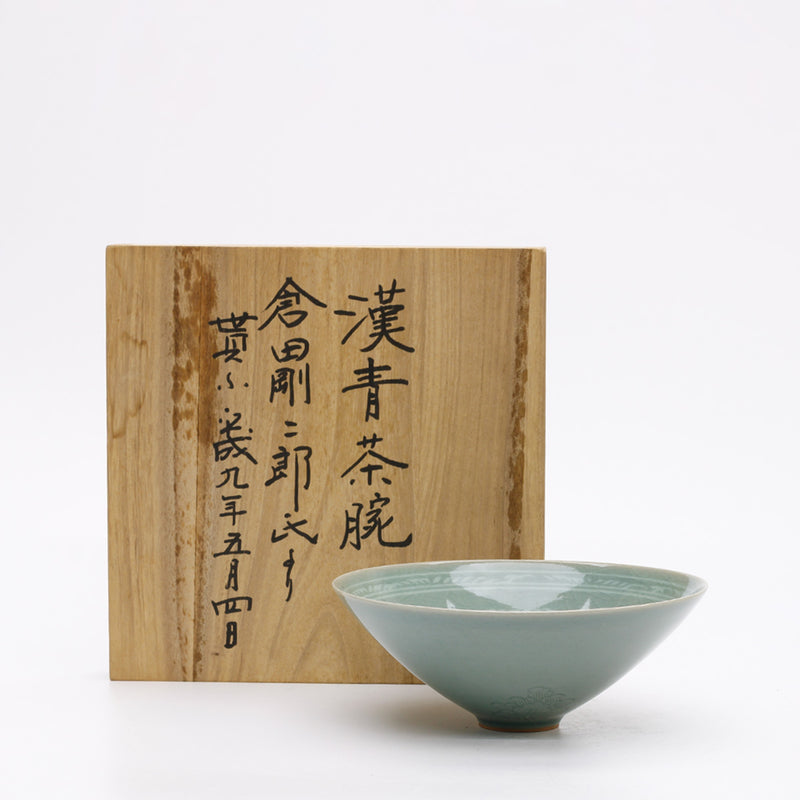 漢青茶腕
倉田剛二郎氏より
貰ふ、平成九年五月四日